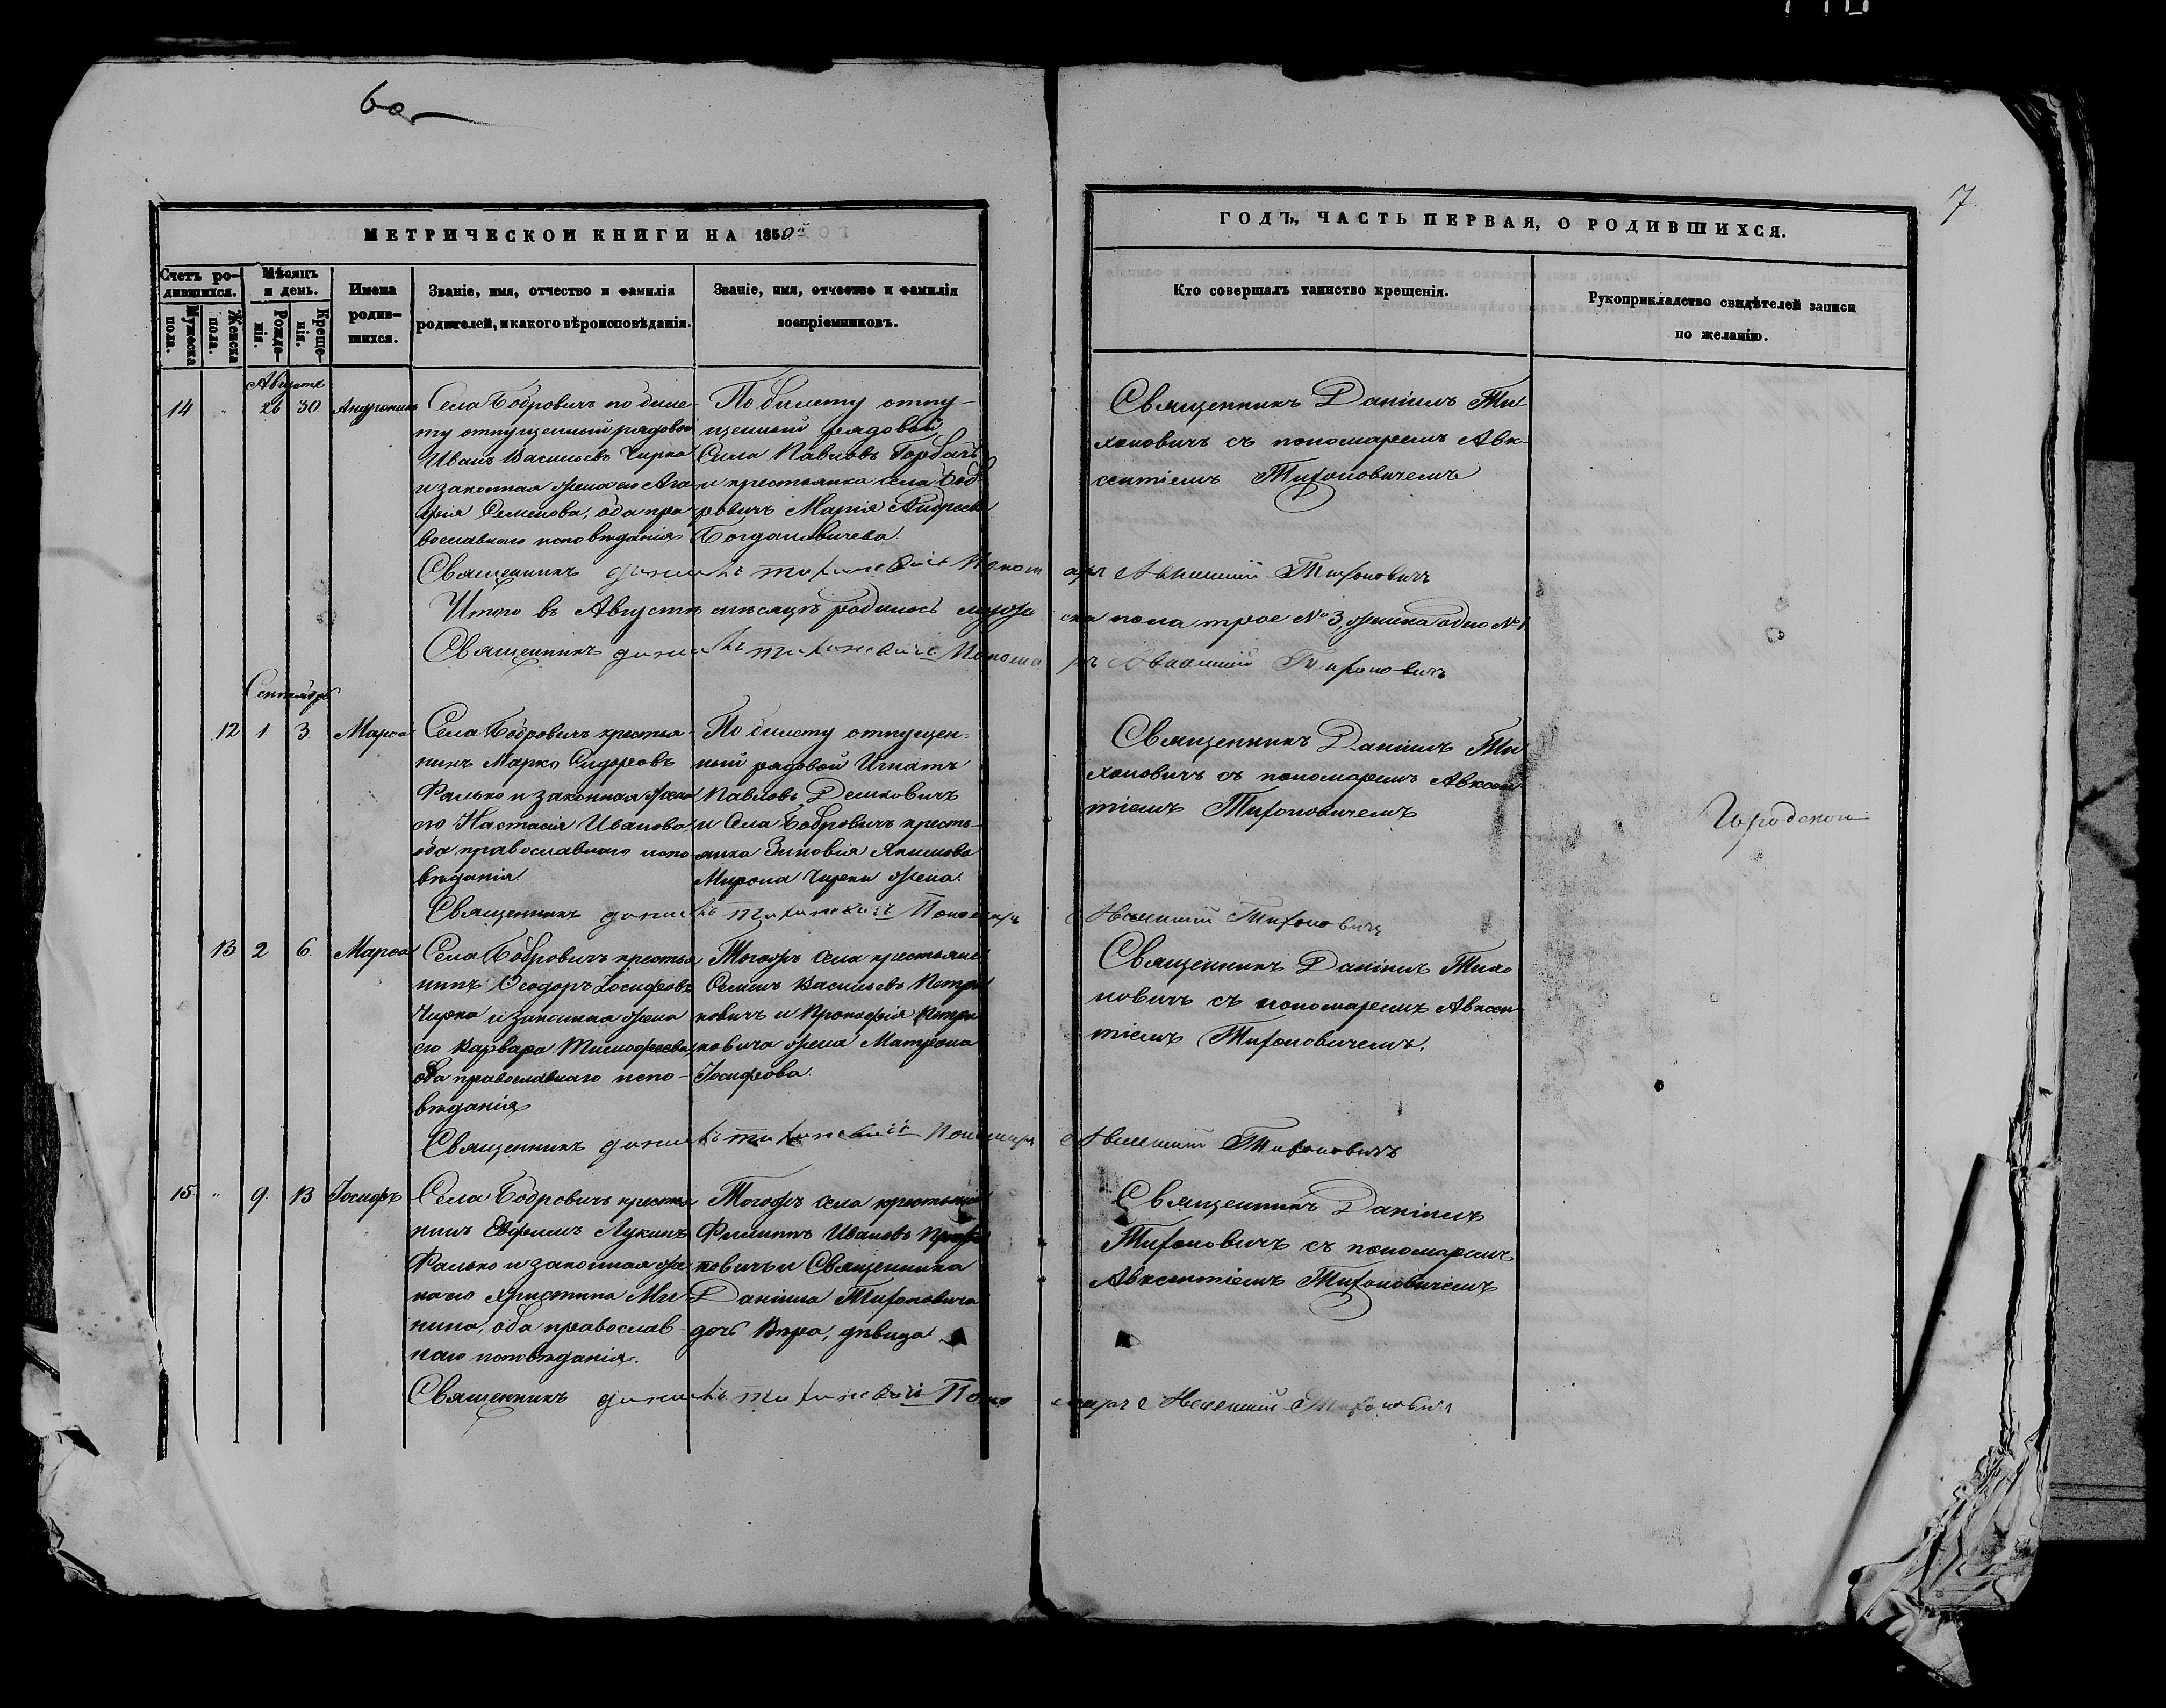 7
МЕТРИЧЕСКОЙ КНИГИ НА 185
Счетъ ро-
дившихся.
Мужеска
пола.
Женска
пола.
Мѣсяцъ
и день.
Рожде-
нія.
Креще-
нія.
Имена
родив-
шихся.
Званіе, имя, отчество и фамилія
родителей, и какого вѣроисповѣданія.
Званіе, имя, отчество и фамилія
воспріемниковъ.
ГОДЪ, ЧАСТЬ ПЕРВАЯ, О РОДИВШИХСЯ.
Кто совершалъ таинство крещенія.
Рукоприкладство свидѣтелей записи
по желанію.
Августъ
14 " 26 30 Андроникъ
Села Бобровичъ по биле-
ту отпущенный рядовой
Иванъ Васильевъ Чирка
и законная жена его Ага-
фія Семенова, оба пра-
вославнаго исповѣданія
По билету отпу-
щенный рядовой
Сила Павловъ Горбачъ
и крестьянка села Боб-
ровичъ Марія Андреева
Богдановичева.
Священникъ Даніилъ Ти-
хоновичъ съ пономаремъ Авк-
сентіемъ Тихоновичемъ
Священникъ Даниилъ Тихоновичъ Пономарь Авксентій Тихоновичъ
Итого въ Августѣ мѣсяцѣ родилось мужеска пола трое № 3, женска одно № 1
Священникъ Даниилъ Тихоновичъ Пономарь Авксентій Тихоновичъ
Сентябрь
12 1 3 Марѳа
Села Бобровичъ крестья-
нинъ Марко Сидоровъ
Фалько и законная жена
его Настасія Иванова
оба православнаго испо-
вѣданія.
По билету отпущен-
ный рядовой Игнатъ
Павловъ Демковичъ
и Села Бобровичъ кресть-
янка Зиновія Якимова
Мирона Чирки жена.
Священникъ Даніилъ Ти-
хоновичъ съ пономаремъ Авксен-
тіемъ Тихоновичемъ
Городской
Священникъ Даниилъ Тихоновичъ Пономарь Авксентій Тихоновичъ
13 2 6 Марѳа
Села Бобровичъ крестья-
нинъ Ѳеодоръ Іосифовъ
Чирка и законна жена
его Варвара Тимофеева
оба православнаго испо-
вѣданія
Тогожъ села крестьяне
Семенъ Васильевъ Петри-
ковичъ и Прокофія Петри-
ковича жена Матрона
Іосифова.
Священникъ Даніилъ Тихо-
новичъ съ пономаремъ Авксен-
тіемъ Тихоновичемъ.
Священникъ Даниилъ Тихоновичъ Пономарь Авксентій Тихоновичъ
15 " 9 13 Іосифъ
Села Бобровичъ крестья-
нинъ Евфимъ Лукинъ
Фалько и законная же-
на его Христина Ми-
нина, оба православ-
наго исповѣданія.
Тогожъ села крестьянинъ
Филиппъ Ивановъ
ковичъ и Священника
Даніила Тихоновича
дочь Вѣра, дѣвица
Священникъ Даніилъ
Тихоновичъ съ пономаремъ
Авксентіемъ Тихоновичемъ
Священникъ Даниилъ Тихоновичъ Пономарь Авксентій Тихоновичъ